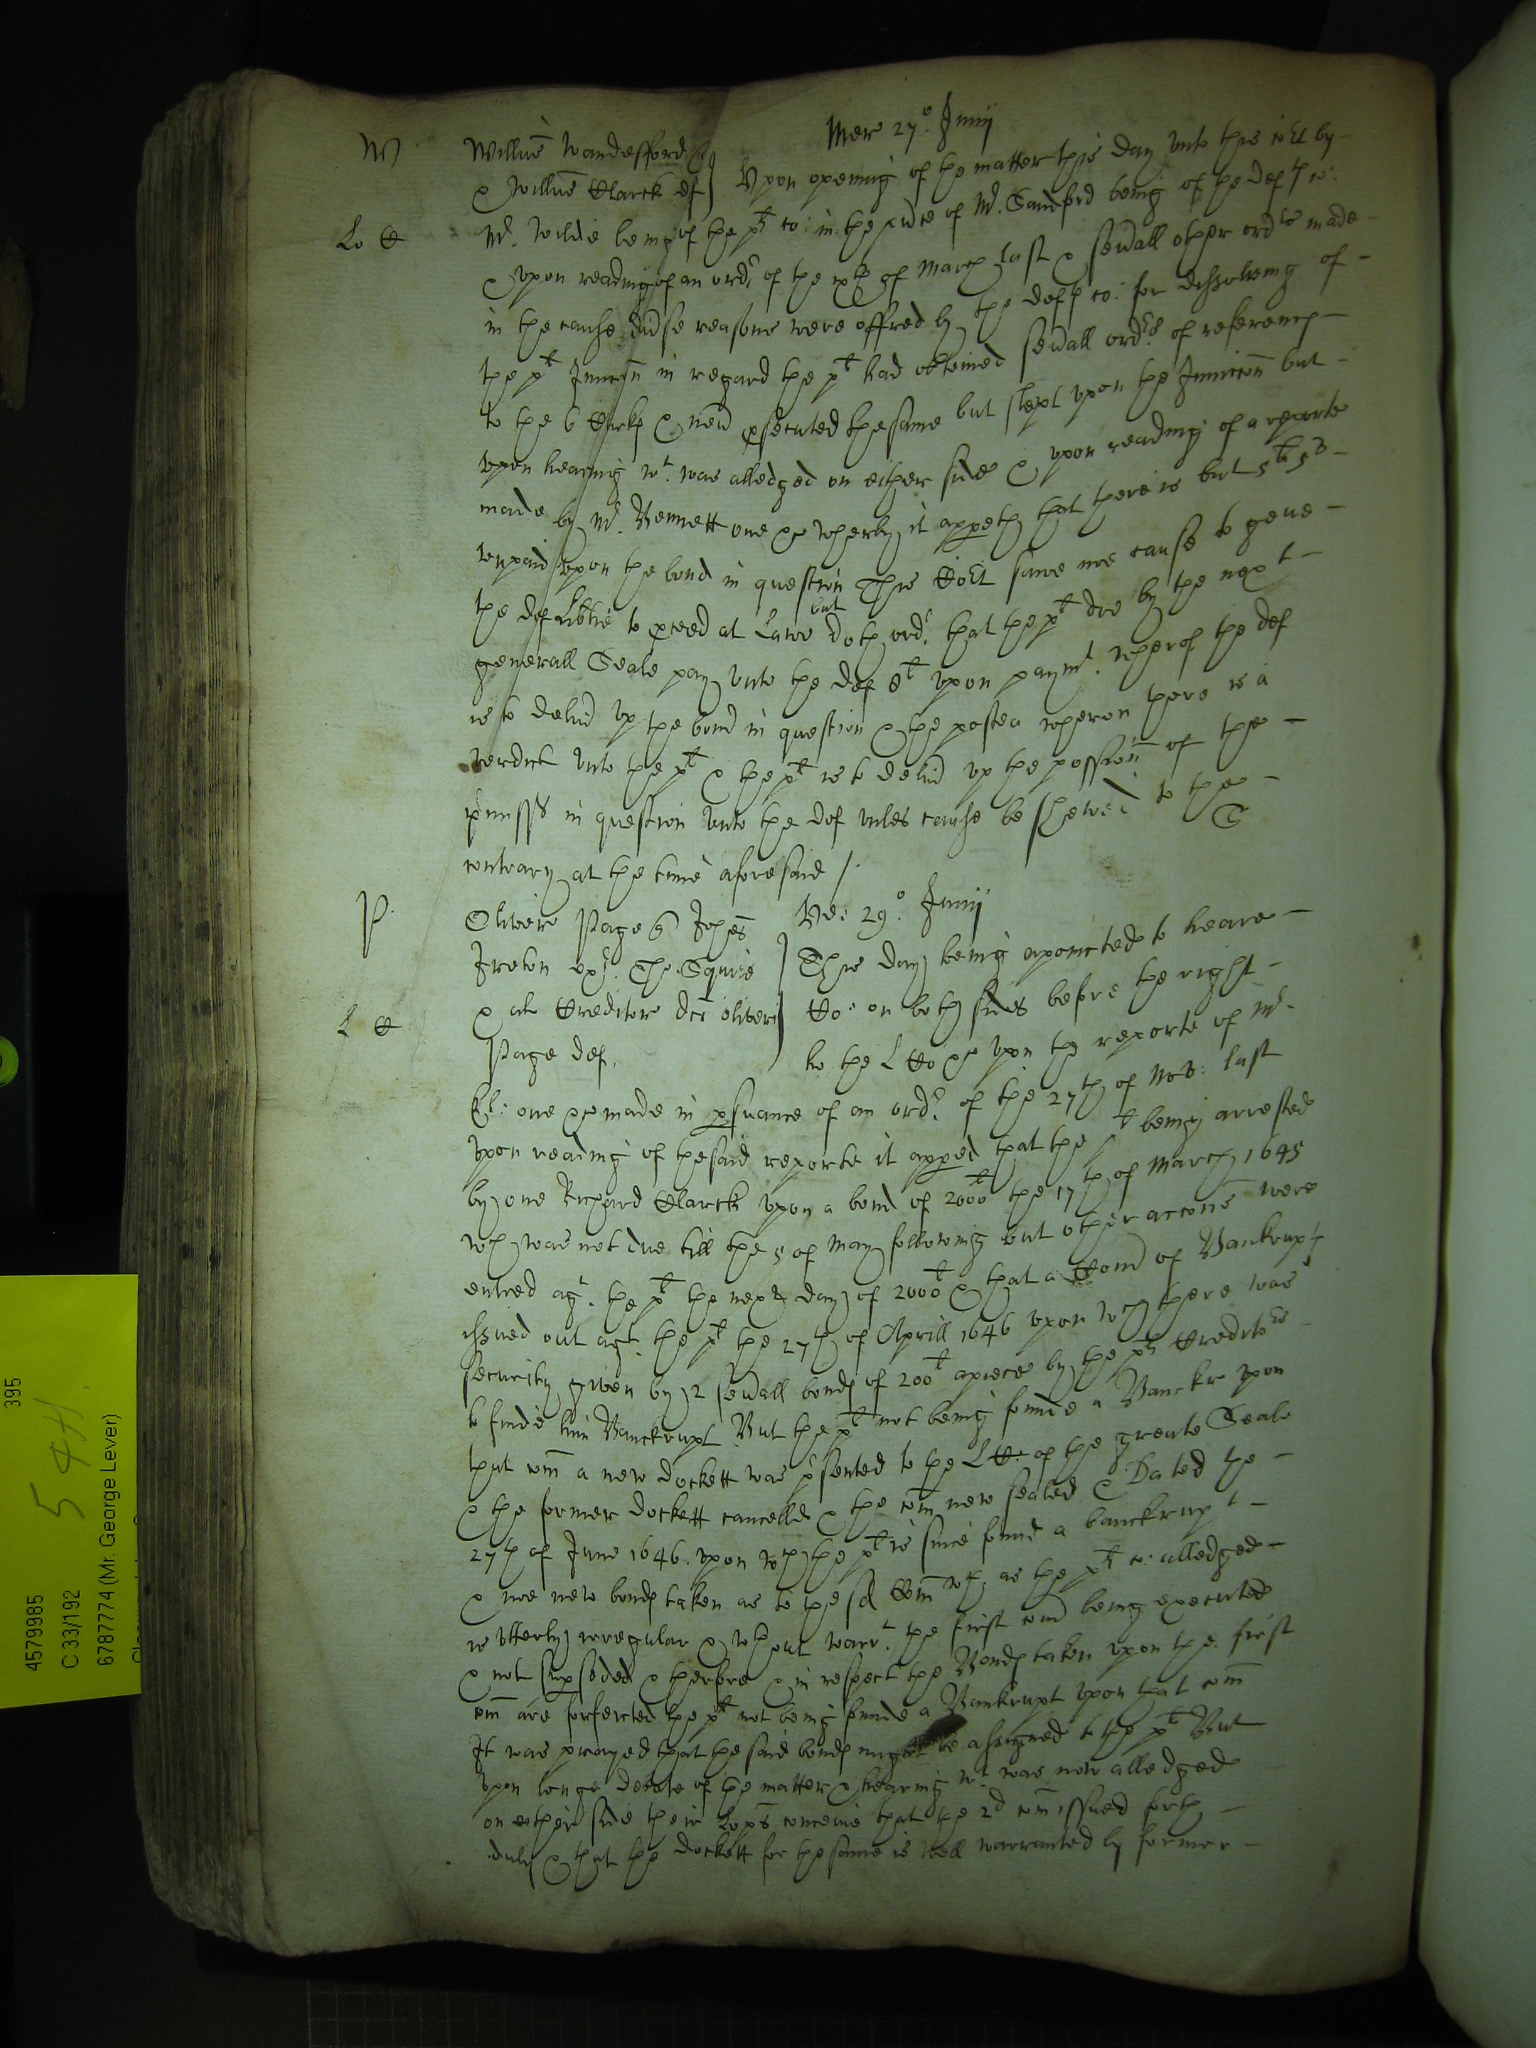 Mer 27° Junij
W Willmͣ Wandesford q
& Willm̄ Clarck def Upon opening of the matter this day unto this coᵗ by
Lo C Mʳ. Wilde being of the plᵗˢ co: in the pñce of Mʳ. Sandford being of the defᵗˢ co:
& upon reading of an ordʳ of the ixᵗʰ of March last & sev̄all other ordʳˢ made
in the cause div̄se reasons were offred by the defᵗˢ co: for dissolveing of
the plᵗ Junccōn in regard the plᵗ had obteined sev̄all ordʳˢ of referenc
to the 6 Clarkˢ & nev̄ p̱secuted the same but slept upon the Junccōn but
upon hearing wᵗ. was alledged on either side & upon reading of a reporte
made by Mʳ. Bennett one &c wherby it appeth that there is but 5ˡⁱ 5ˢ
unpaid upon the bond in question This Coᵗ sawe noe cause to geve
the def lib̄tie to p̱ceed at Lawe but doth ordʳ. that the plᵗ doe by the next
generall Seale pay unto the def 8ˡ upon paymᵗ. wherof the def
is to deliv̄ up the bond in question & the postea wheron there is a
verdict unto the plᵗ & the plᵗ is to deliv̄ up the possiōn of the
p̱miss̄s in question unto the def unles cause be shewed to the
contrary at the time aforesaid /.
P. Oliver Page q Johēs Ve: 29° Junij
Ireton exʳ. Tho. Squire This day being apointed to heare
L C & al Creditor dc̄i Oliveri Co: on both sides before the right
Page def. ho the L Co &c upon the reporte of Mʳ
El: one &c made in p̱suance of an ordʳ. of the 27th of Nov: last
Upon reading of the said reporte it apped that the plᵗ being arrested
by one Richard Clarck upon a bond of 2000ˡ the 17th of March 1645
wch was not due till the 5 of May following but other accōns were
entred agᵗ. the plᵗ the next day of 2000ˡ & that a Com̄ of Bankrupt
issued out agᵗ. the plᵗ the 27th of Aprill 1646 upon wch there was
security given by 2 sev̄all bonds of 200ˡ apiece by the plᵗˢ Creditoʳˢ
to finde him Banckrupt But the plᵗ not being founde a Banckr upon
that com̄ a new dockett was p̱sented to the L Co: of the greate Seale
& the former dockett cancelled & the com̄ new sealed & Dated the
27th of June 1646. upon wch the plᵗ is since found a banckrupt
& noe new bonds taken as to the sd Com̄ wch as the plᵗˢ co: alledged
is utterly irregular & wthout warrᵗ. the first com̄ being executed
& not sup̱seded & therfore & in respect the Bonds taken upon the first
com̄ are forfeited the plᵗ not being founde a Bankrupt upon that com̄
It was prayed that the said bonds might be assigned to the plᵗ But
upon longe debate of the matter & hearing wᵗ. was now alledged
on either side their Loᵖˢ conceive that the 2d com̄ issued forth
duly & that the dockett for the same is well warranted by former
4579985 395
C 33/192 544
6787774 (Mr. George Lever)